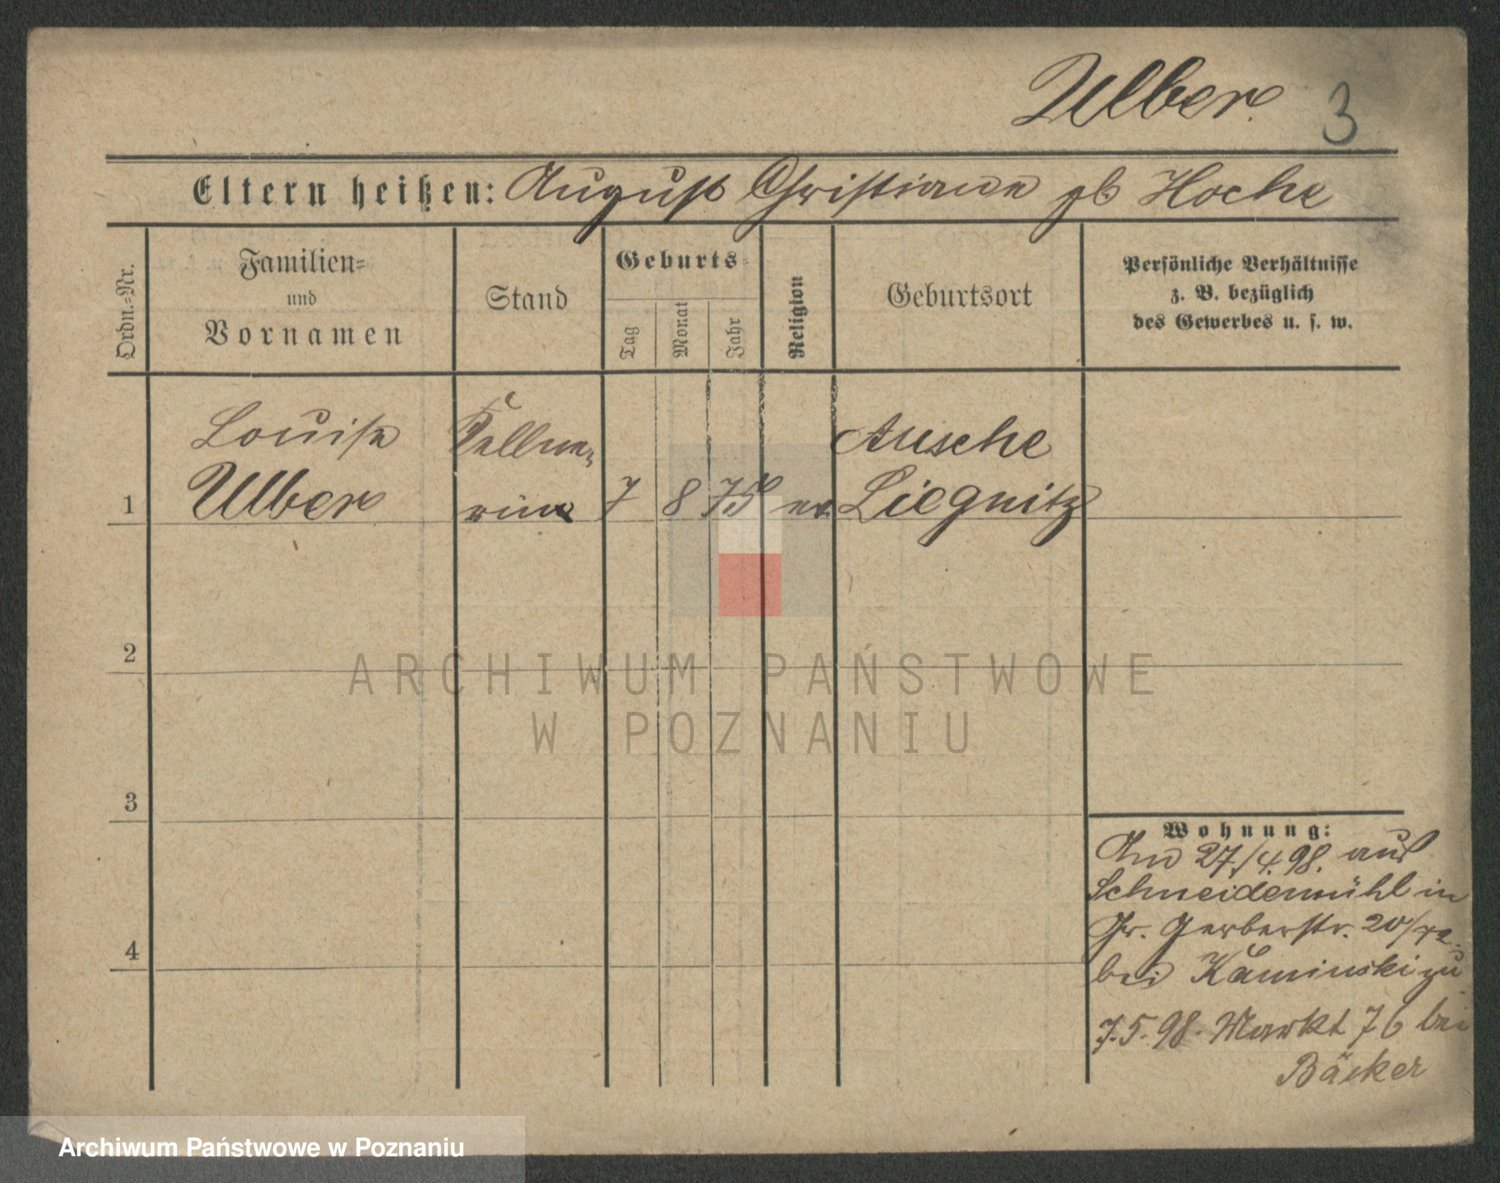 Ulber.
3
Eltern heißen: August Christiane gb Hoche
Ordn.-Nr.
Familien-
und
Vornamen
Stand
Geburts-
Tag
Monat
Jahr
Religion
Geburtsort
Persönliche Verhältnisse
z. B. bezüglich
des Gewerbes u. s. w.
Louise Kellne- Ausche
1 Ulber rin 7 8 75 ev Liegnitz
2
ARCHIWUM PAŃSTWOWE
W POZNANIU
3
Wohnung:
Am 27/4.98. aus
Schneidemühl in
Gr. Gerberstr. 20/
4
bei Kaminski zu
7.5.98. Markt 76 bei
Bäcker
Archiwum Państwowe w Poznaniu